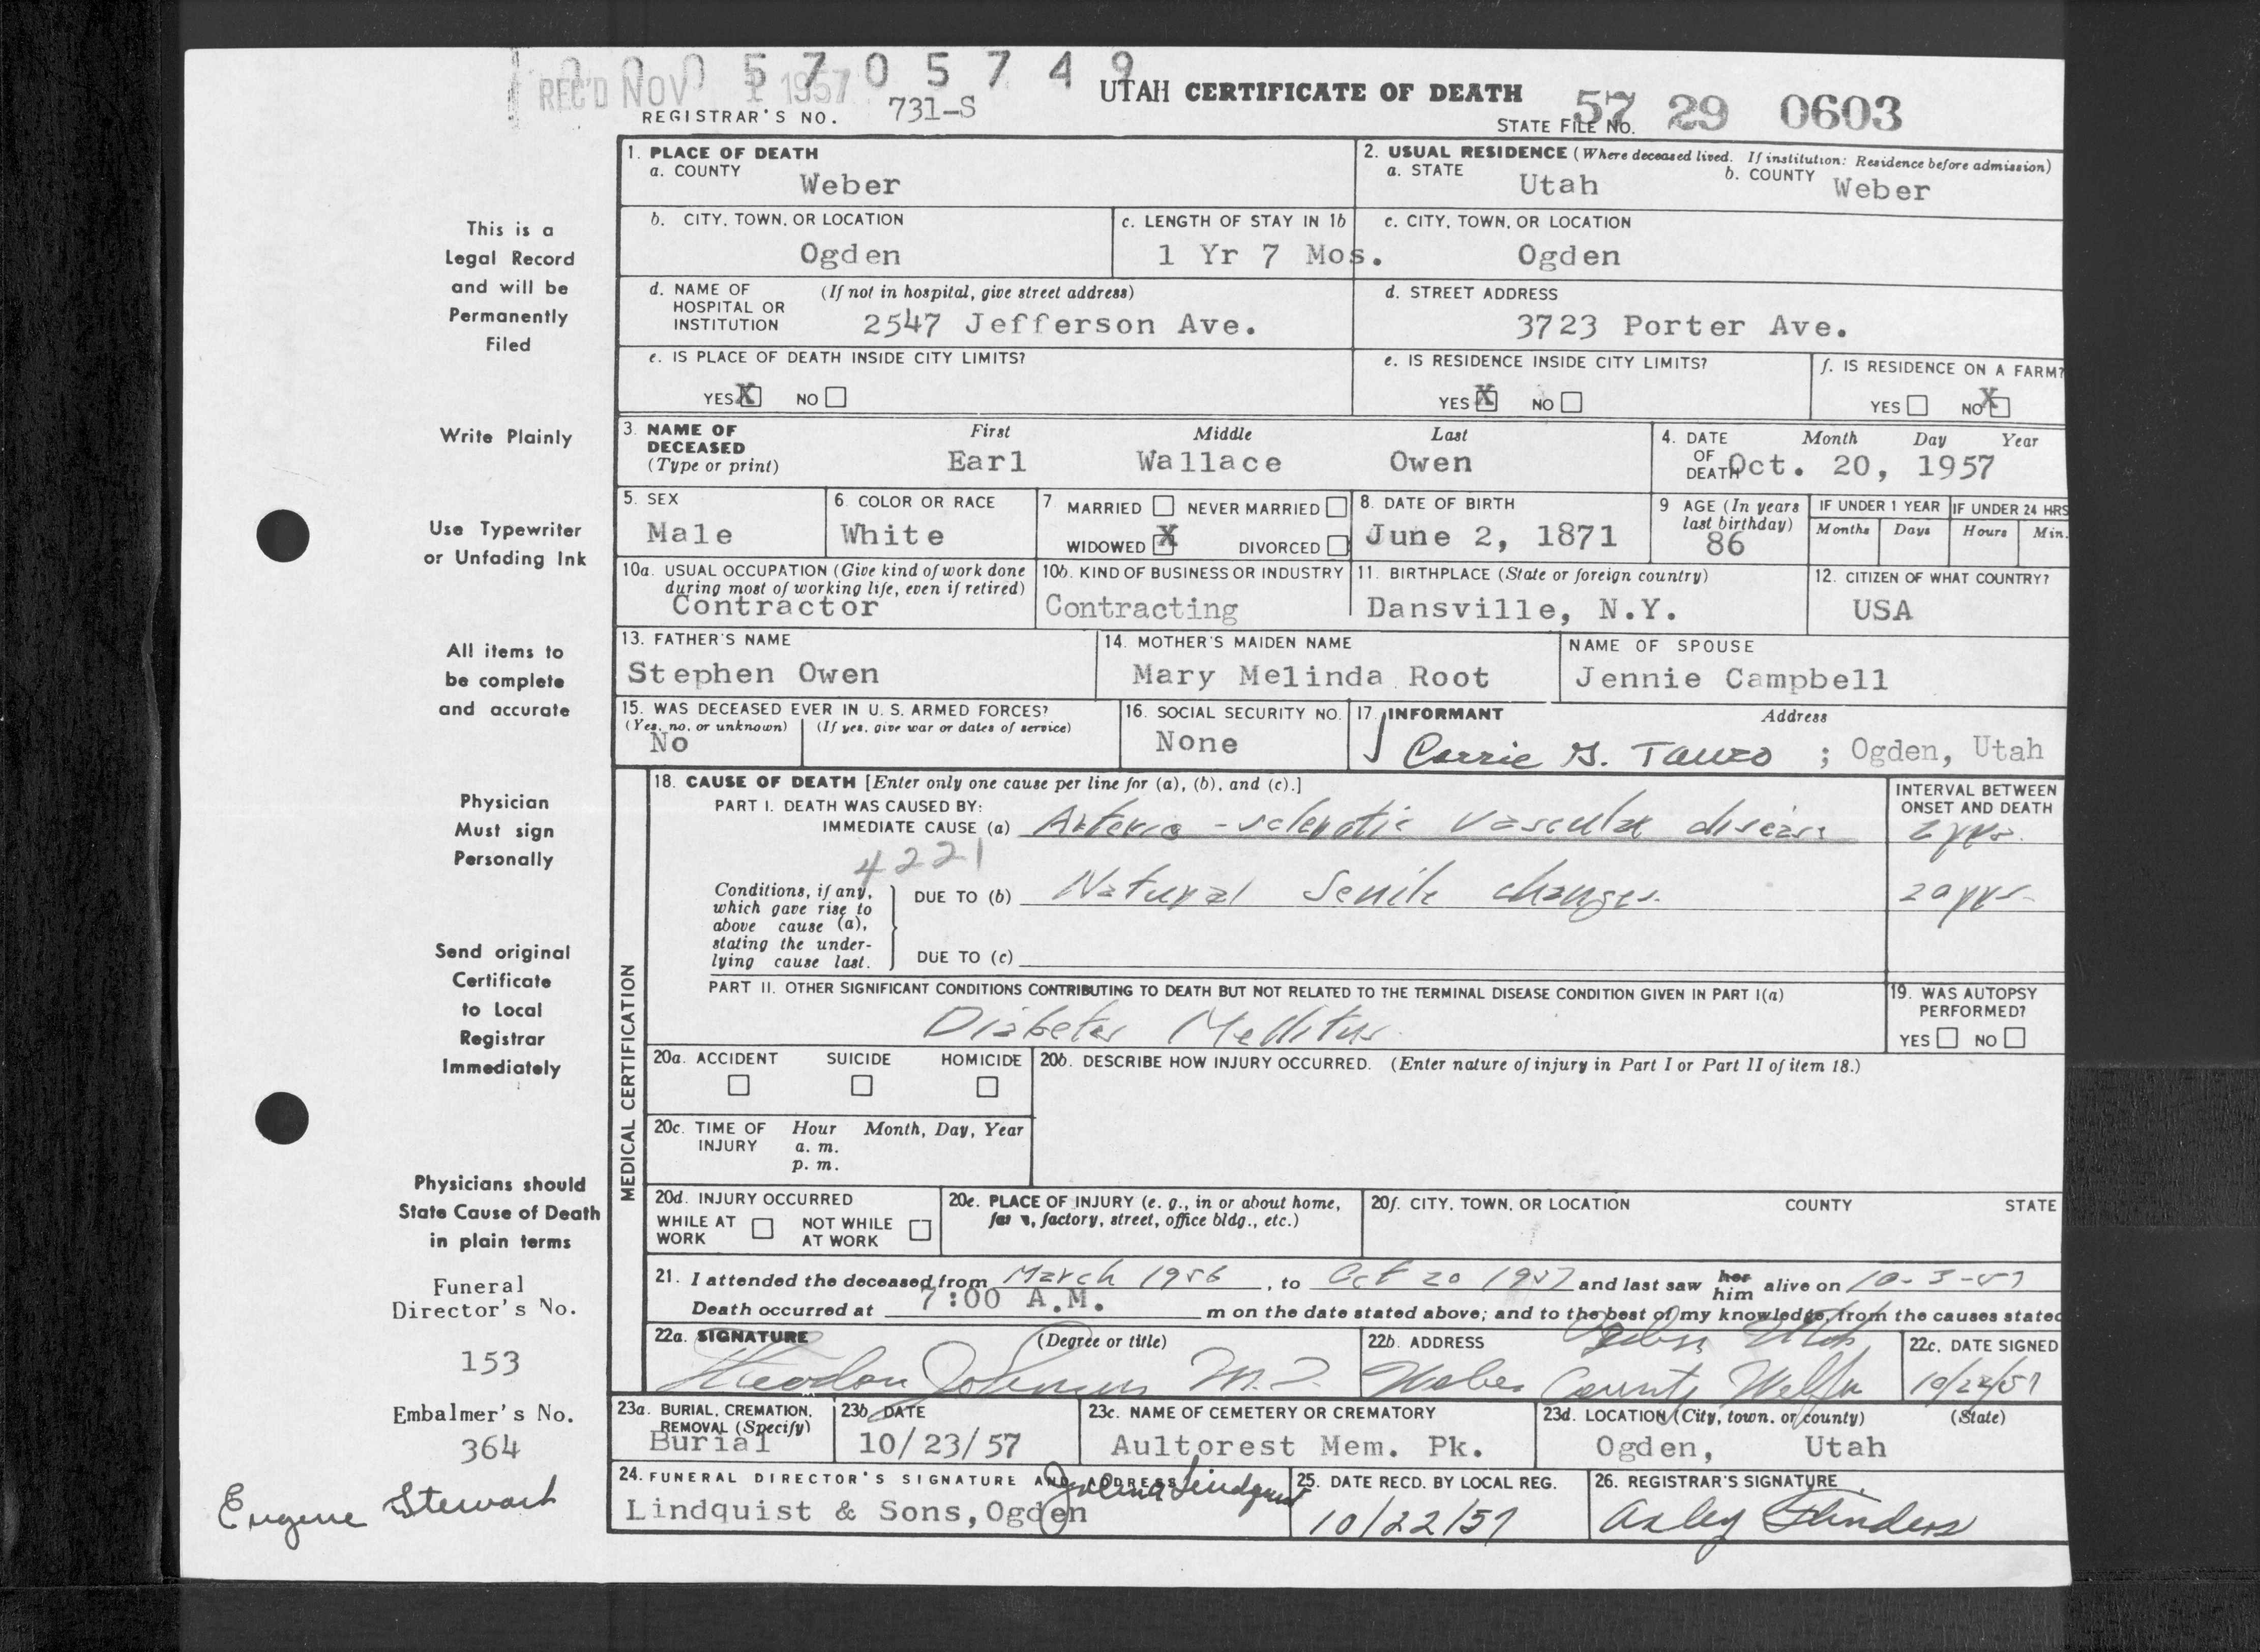 0 0 0 5 7 0 5 7 4 9
REC'D NOV 1 1957
UTAH CERTIFICATE OF DEATH
REGISTRAR'S NO. 731-S
STATE FILE NO. 57 29 0603
1. PLACE OF DEATH
a. COUNTY Weber
2. USUAL RESIDENCE (Where deceased lived. If institution: Residence before admission)
a. STATE Utah b. COUNTY Weber
b. CITY, TOWN, OR LOCATION Ogden
c. LENGTH OF STAY IN 1b 1 Yr 7 Mos.
c. CITY, TOWN, OR LOCATION Ogden
d. NAME OF HOSPITAL OR INSTITUTION (If not in hospital, give street address) 2547 Jefferson Ave.
d. STREET ADDRESS 3723 Porter Ave.
e. IS PLACE OF DEATH INSIDE CITY LIMITS?
YES X NO
e. IS RESIDENCE INSIDE CITY LIMITS?
YES X NO
f. IS RESIDENCE ON A FARM?
YES NO X
3. NAME OF DECEASED (Type or print) First Middle Last
Earl Wallace Owen
4. DATE OF DEATH Month Day Year
Oct. 20, 1957
5. SEX Male
6. COLOR OR RACE White
7 MARRIED NEVER MARRIED
WIDOWED X DIVORCED
8. DATE OF BIRTH June 2, 1871
9 AGE (In years last birthday) 86
IF UNDER 1 YEAR Months Days
IF UNDER 24 HRS Hours Min.
10a. USUAL OCCUPATION (Give kind of work done during most of working life, even if retired) Contractor
10b. KIND OF BUSINESS OR INDUSTRY Contracting
11. BIRTHPLACE (State or foreign country) Dansville, N.Y.
12. CITIZEN OF WHAT COUNTRY? USA
13. FATHER'S NAME Stephen Owen
14. MOTHER'S MAIDEN NAME Mary Melinda Root
NAME OF SPOUSE Jennie Campbell
15. WAS DECEASED EVER IN U. S. ARMED FORCES?
(Yes, no, or unknown) (If yes, give war or dates of service)
No
16. SOCIAL SECURITY NO. None
17. INFORMANT Address
Carrie G. ; Ogden, Utah
MEDICAL CERTIFICATION
18. CAUSE OF DEATH [Enter only one cause per line for (a), (b), and (c).]
INTERVAL BETWEEN ONSET AND DEATH
PART I. DEATH WAS CAUSED BY:
IMMEDIATE CAUSE (a) Arterio-sclerotic vascular disease yrs.
4221
Conditions, if any, which gave rise to above cause (a), stating the underlying cause last.
DUE TO (b) Natural Senile changes. 20 yrs
DUE TO (c)
PART II. OTHER SIGNIFICANT CONDITIONS CONTRIBUTING TO DEATH BUT NOT RELATED TO THE TERMINAL DISEASE CONDITION GIVEN IN PART I(a)
Diabetes Mellitus
19. WAS AUTOPSY PERFORMED?
YES NO
20a. ACCIDENT SUICIDE HOMICIDE
20b. DESCRIBE HOW INJURY OCCURRED. (Enter nature of injury in Part I or Part II of item 18.)
20c. TIME OF INJURY Hour Month, Day, Year
a. m.
p. m.
20d. INJURY OCCURRED
WHILE AT WORK NOT WHILE AT WORK
20e. PLACE OF INJURY (e. g., in or about home, farm, factory, street, office bldg., etc.)
20f. CITY, TOWN, OR LOCATION COUNTY STATE
21. I attended the deceased from March 1956, to Oct 20 1957 and last saw her him alive on 10-3-57
Death occurred at 7:00 A.M. m on the date stated above; and to the best of my knowledge, from the causes stated
22a. SIGNATURE (Degree or title)
Theodore Johnson M.D.
22b. ADDRESS Ogden Utah
Weber County Welfare
22c. DATE SIGNED 10/22/57
23a. BURIAL, CREMATION, REMOVAL (Specify) Burial
23b DATE 10/23/57
23c. NAME OF CEMETERY OR CREMATORY Aultorest Mem. Pk.
23d. LOCATION (City, town, or county) (State)
Ogden, Utah
24. FUNERAL DIRECTOR'S SIGNATURE AND ADDRESS Lindquist
Lindquist & Sons, Ogden
25. DATE RECD. BY LOCAL REG. 10/22/57
26. REGISTRAR'S SIGNATURE
Flinders
This is a
Legal Record
and will be
Permanently
Filed
Write Plainly
Use Typewriter
or Unfading Ink
All items to
be complete
and accurate
Physician
Must sign
Personally
Send original
Certificate
to Local
Registrar
Immediately
Physicians should
State Cause of Death
in plain terms
Funeral
Director's No.
153
Embalmer's No.
364
Eugene Stewart